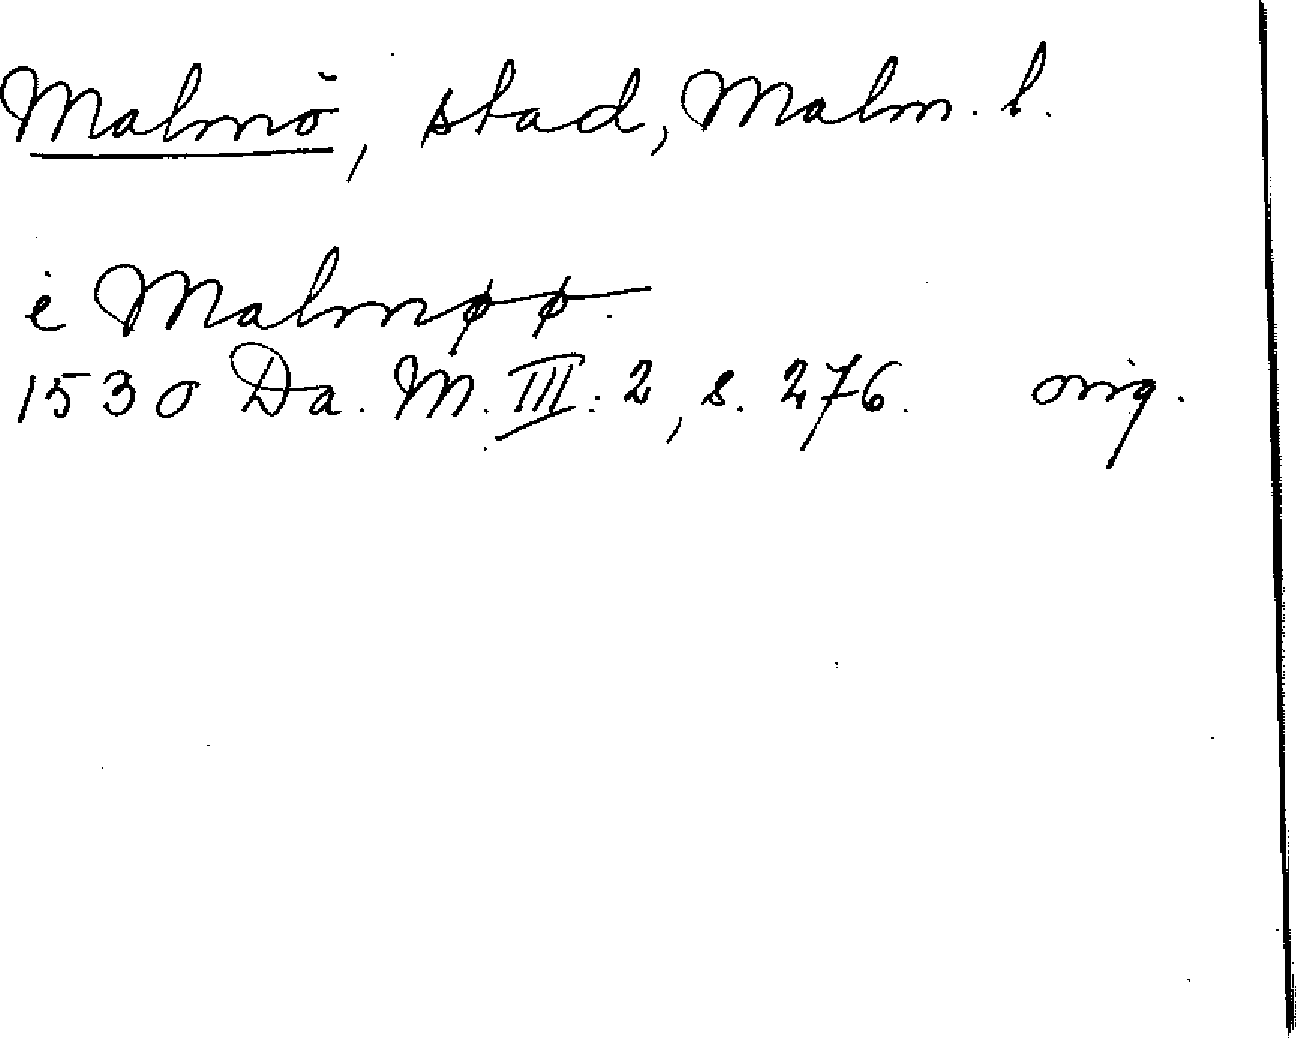 Malmö, stad, Malm. l.
i Malmøø.
1530 Da. M. III: 2, s. 276. orig.